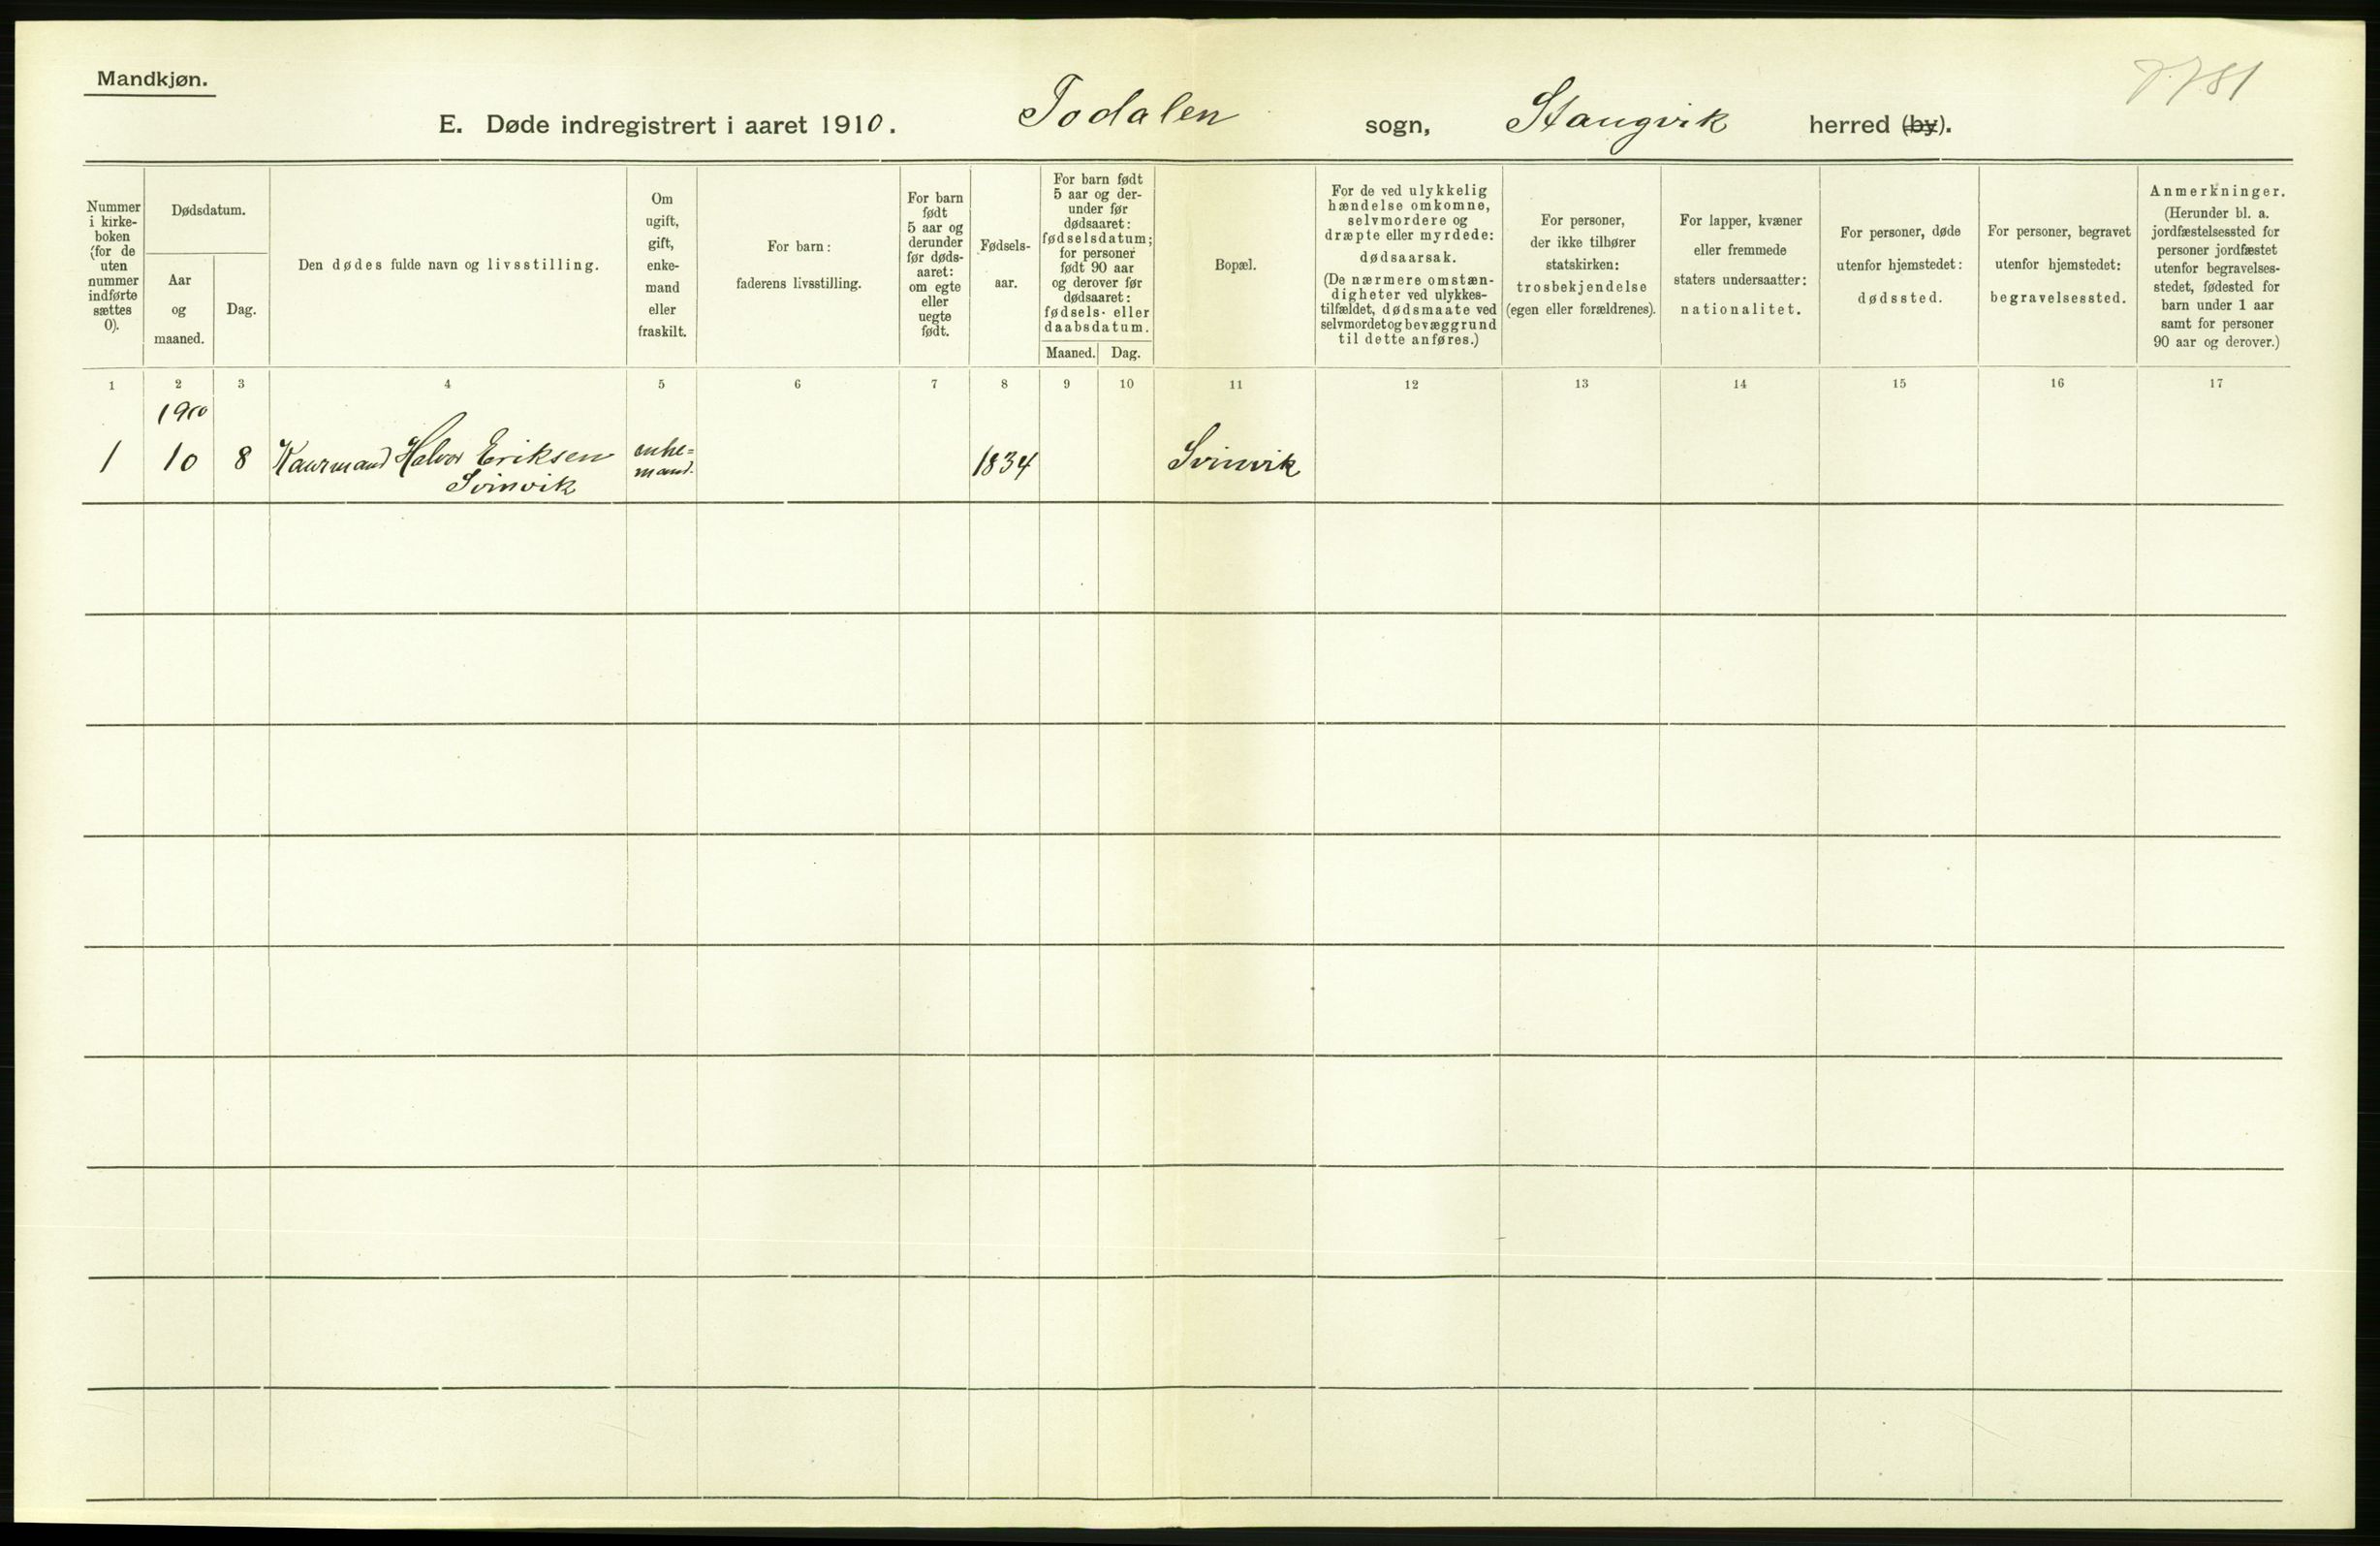 Mandkjøn.
7781
E. Døde indregistrert i aaret 1910. Todalen sogn, Stangvik herred (by).
Nummer i kirke- boken (for de uten nummer indførte sættes 0).
Dødsdatum.
Aar og maaned.
Dag.
Den dødes fulde navn og livsstilling.
Om ugift, gift, enke- mand eller fraskilt.
For barn: faderens livsstilling.
For barn født 5 aar og derunder før døds- aaret: om egte eller uegte født.
Fødsels- aar.
For barn født 5 aar og der- under før dødsaaret: fødselsdatum; for personer født 90 aar og derover før dødsaaret: fødsels- eller daabsdatum.
Maaned. Dag.
Bopæl.
For de ved ulykkelig hændelse omkomne, selvmordere og dræpte eller myrdede: dødsaarsak. (De nærmere omstæn- digheter ved ulykkes- tilfældet, dødsmaate ved selvmordet og bevæggrund til dette anføres.)
For personer, der ikke tilhører statskirken: trosbekjendelse (egen eller forældrenes).
For lapper, kvæner eller fremmede staters undersaatter: nationalitet.
For personer, døde utenfor hjemstedet: dødssted.
For personer, begravet utenfor hjemstedet: begravelsessted.
Anmerkninger. (Herunder bl. a. jordfæstelsessted for personer jordfæstet utenfor begravelses- stedet, fødested for barn under 1 aar samt for personer 90 aar og derover.)
1 2 3 4 5 6 7 8 9 10 11 12 13 14 15 16 17
1910
1 10 8 Kaarmand Halvor Eriksen enke= 1834 Svinvik
Svinvik mand.